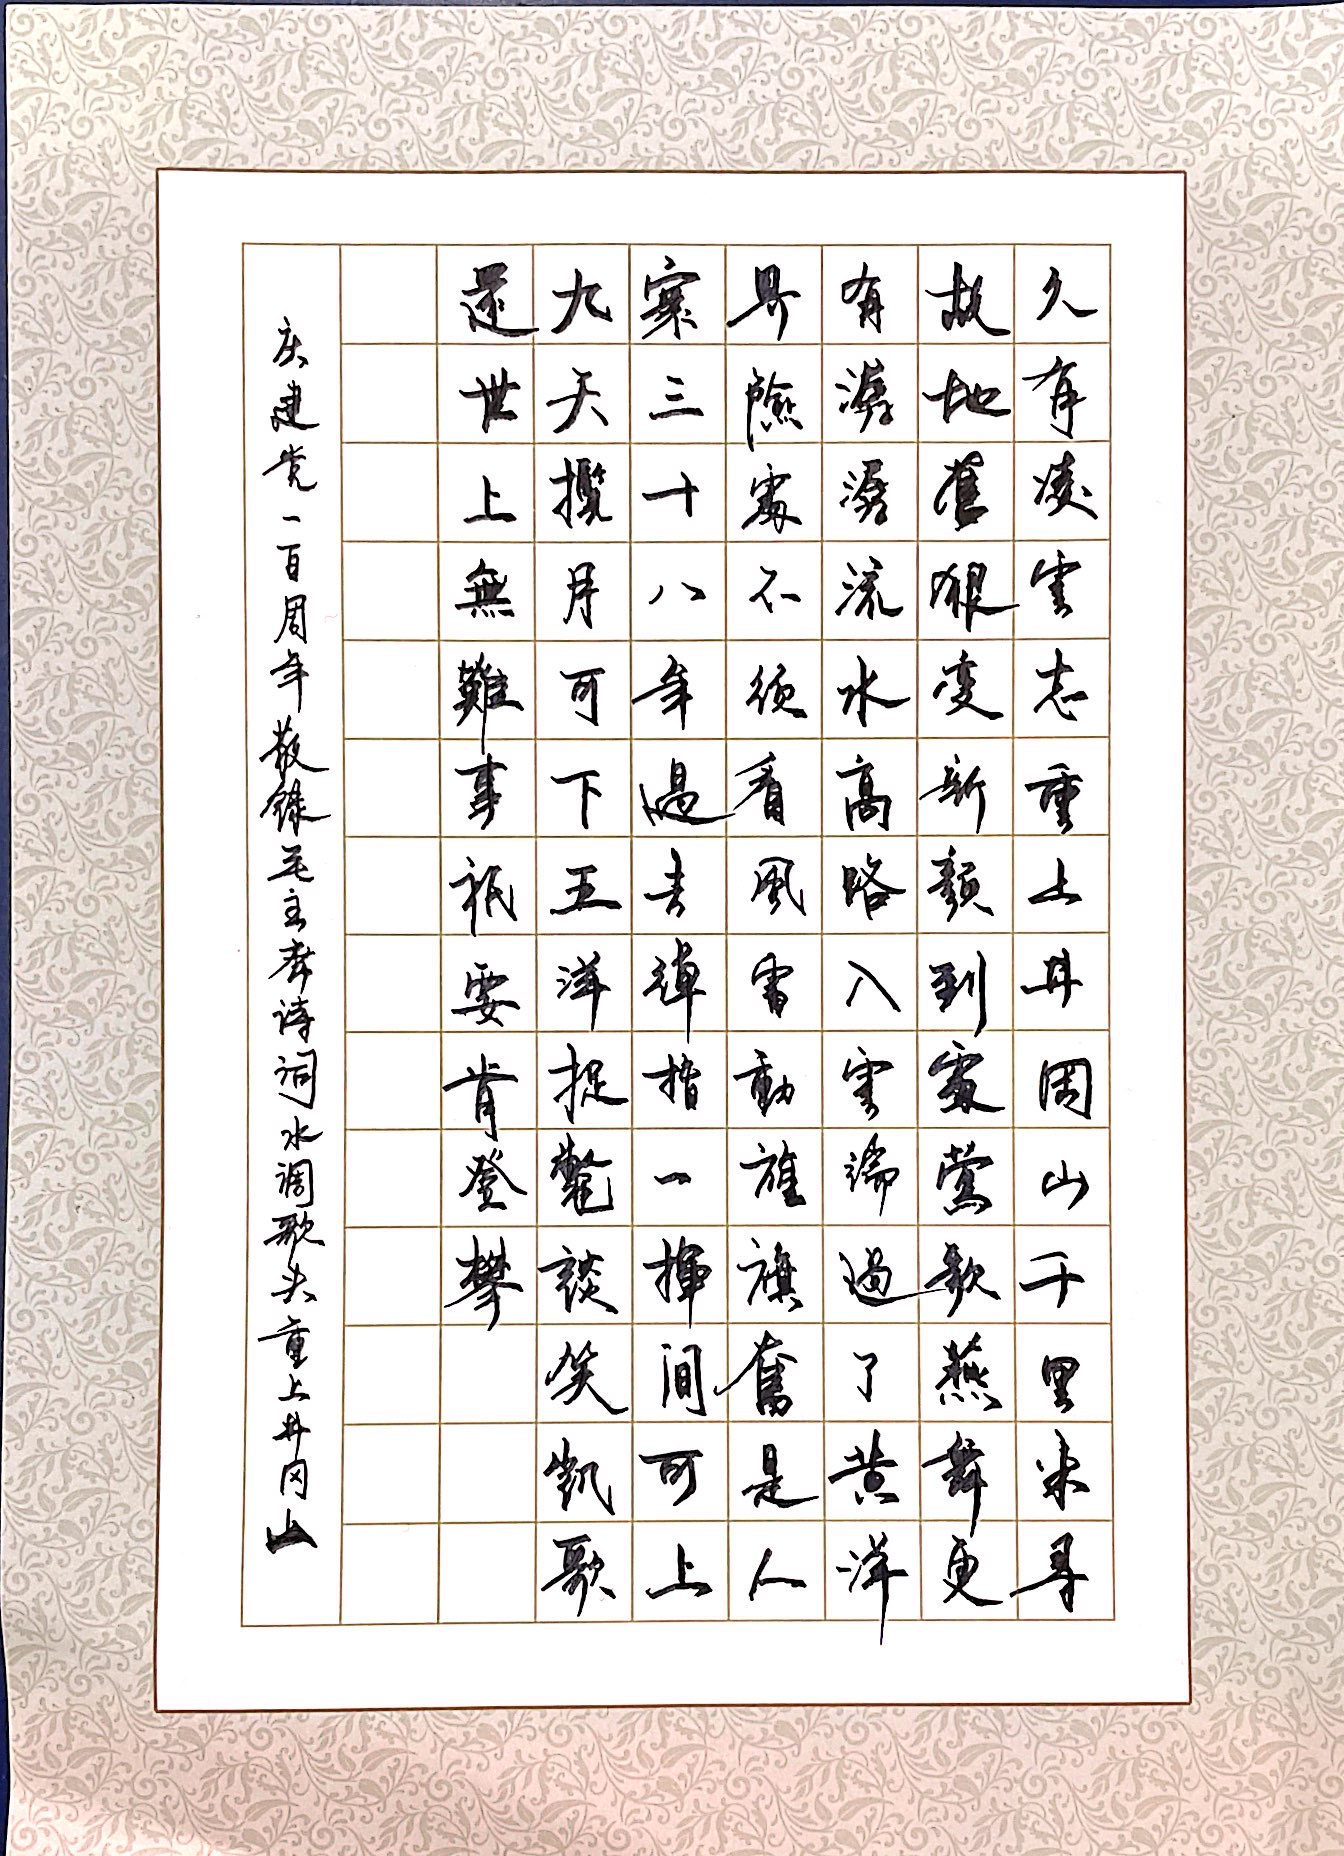 久有凌雲志重上井岡山千里来寻
故地舊貌变新顔到處鶯歌燕舞更
有潺潺流水高路入雲端過了黄洋
界險處不须看風雷動旌旗奮是人
寰三十八年過去彈指一揮间可上
九天攬月可下五洋捉鼈談笑凯歌
還世上無難事祇要肯登攀
庆建党一百周年敬録毛主席诗词水调歌头重上井冈山